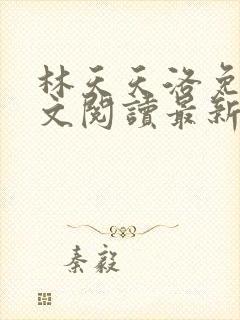 林天天洛免
文閱讀最新
秦毅